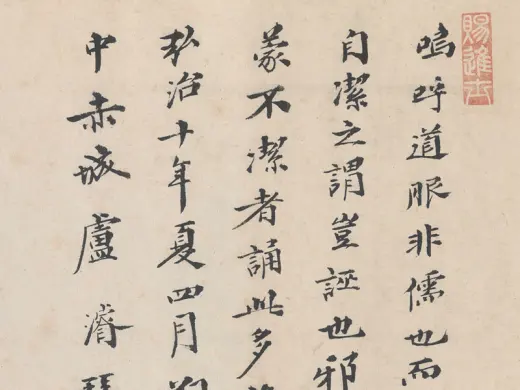 賜進士
嗚呼道眼非儒也而
自潔之謂豈誣也邪
蒙不潔者誦此多
弘治十年夏四月
中赤城盧濬